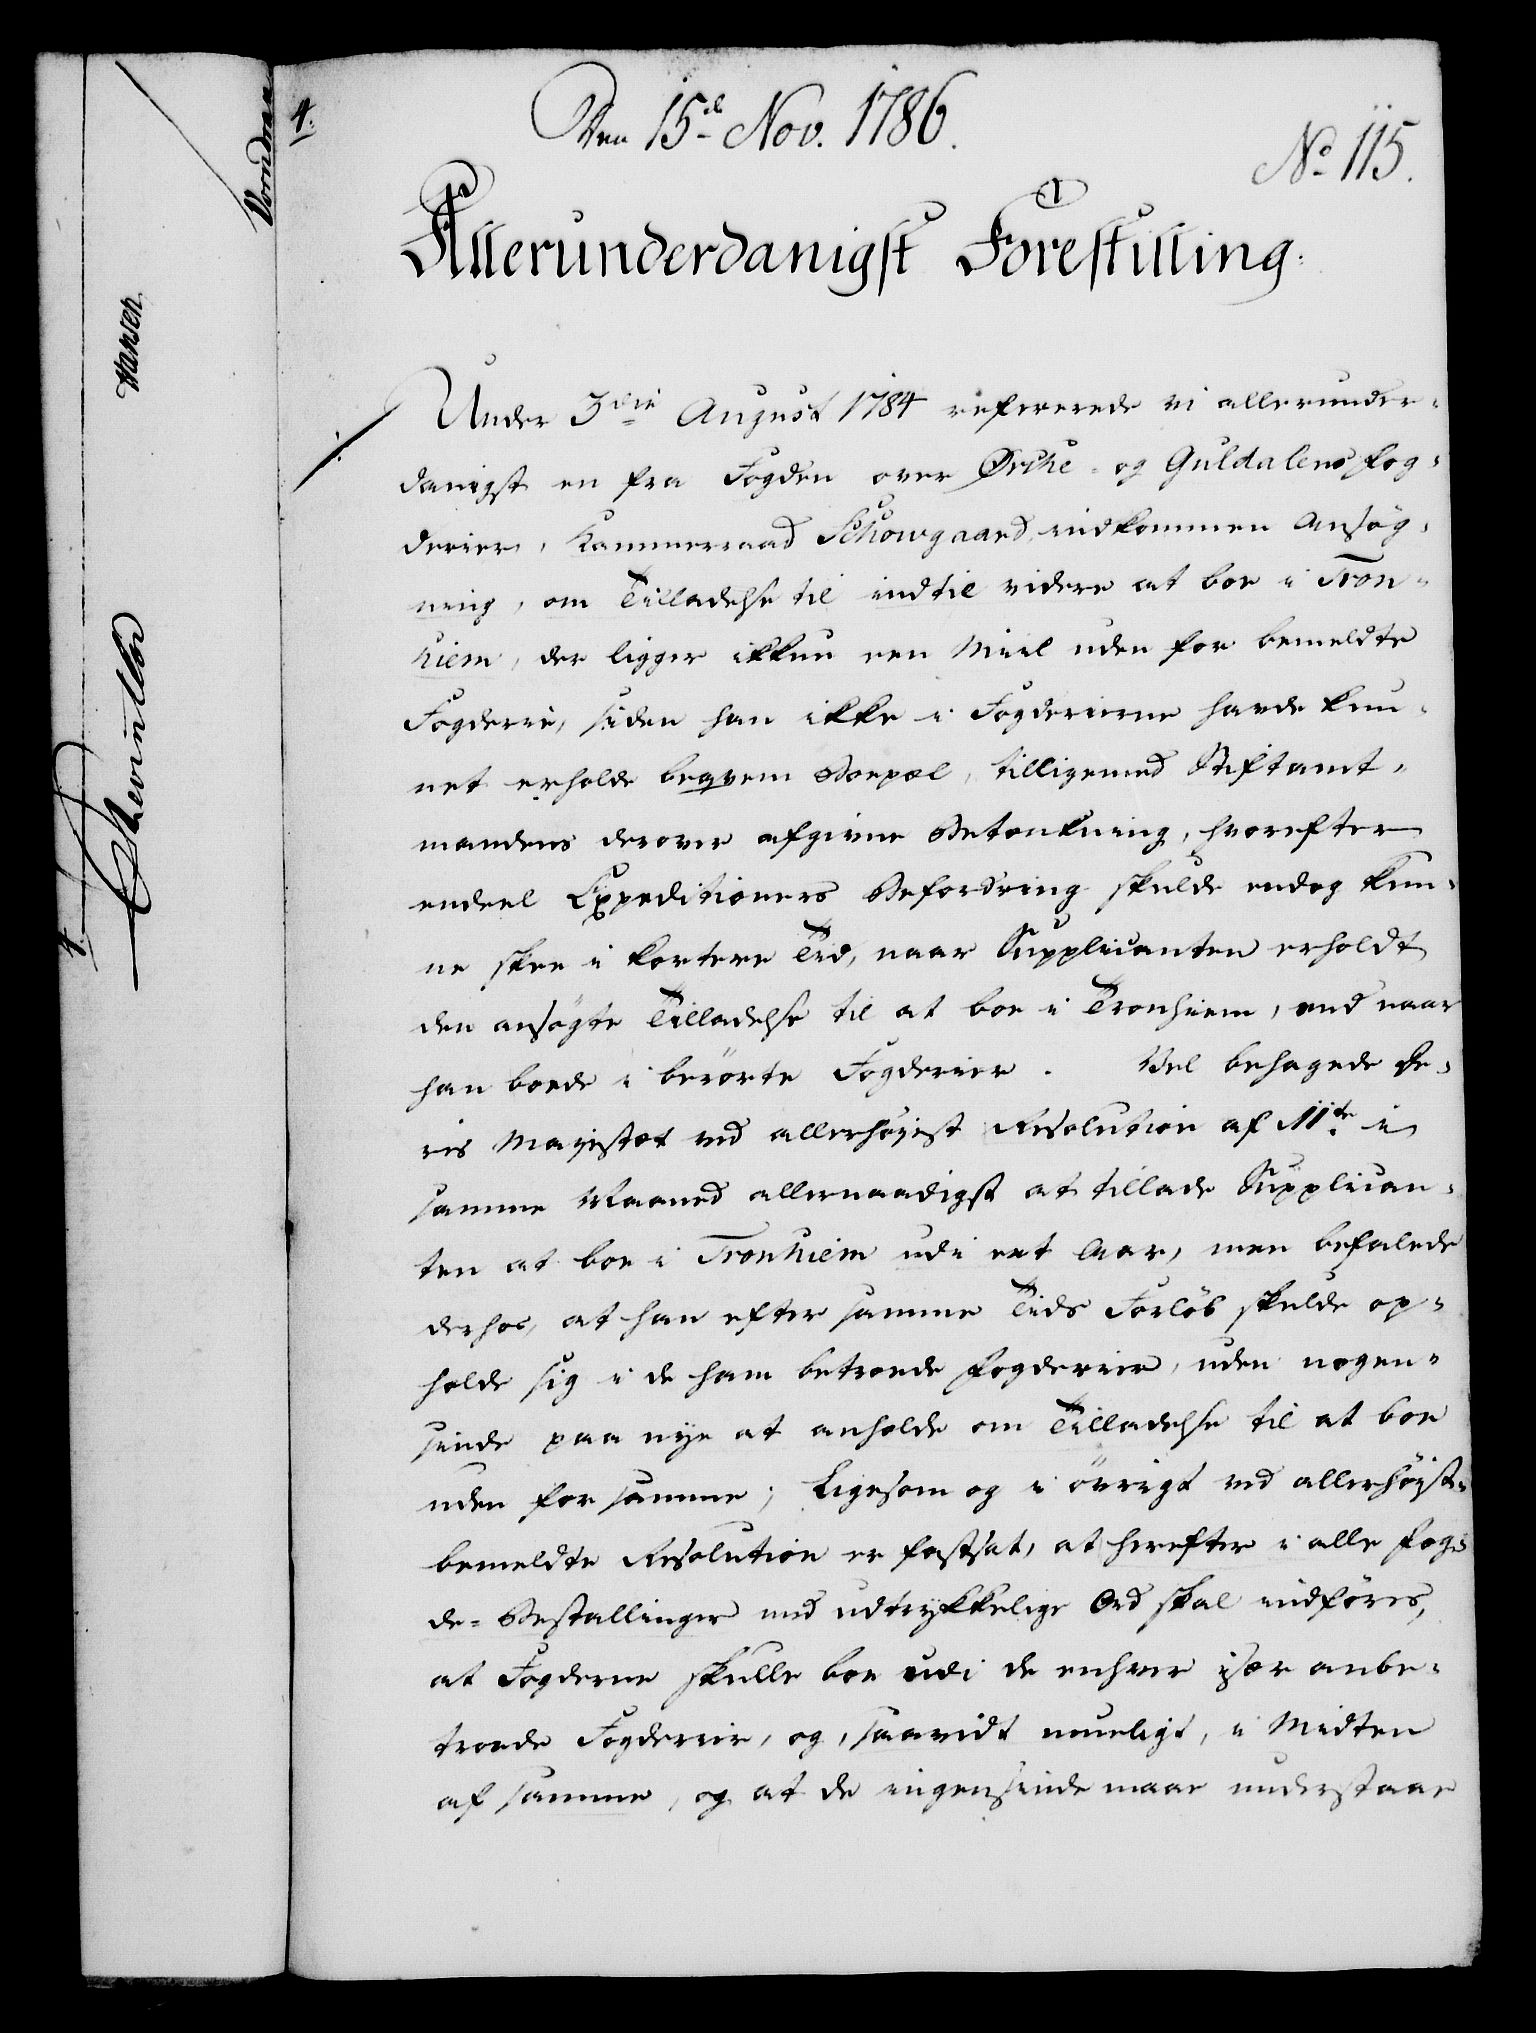 Den 15.d Nov. 1786.
No 115.
Allerunderdanigst Forestilling.
Under 3die August 1784 refererede vi allerunder-
danigst en fra Fogden over Ørche- og Guldalens fog-
derier, Kammerraad Schowgaard indkommen Ansøg-
ning, om Tilladelse til indtil videre at boe i Tron-
hiem, der ligger ikkun een Miil uden for bemeldte
Fogderie, siden han ikke i Fogderierne havde kun-
net erholde beqvem Boepæl, tilligemed Stiftamt-
mandens derover afgivne Betænkning, hvorefter
endeel Expeditioners Befordring skulde endog kun-
ne skee i kortere Tid, naar Supplicanten erholdt
den ansögte Tilladelse til at boe i Tronhiem, end naar
han boede i berörte Fogderier. Vel behagede De-
res Majestæt ved allerhöjest Resolution af 11te i
samme Maaned allernaadigst at tillade Supplican-
ten at boe i Tronhiem udi eet Aar, men befalede
derhos, at han efter samme Tids Forlöb skulde op-
holde sig i de ham betroede Fogderier, uden nogen-
sinde paa nye at anholde om Tilladelse til at boe
uden for samme; Ligesom og i övrigt ved allerhöjst-
bemeldte Resolution er fastsat, at herefter i alle Fog-
de-Bestallinger med udtrykkelige Ord skal indföres,
at Fogderne skulle boe udi de enhver især anbe-
troede Fogderier, og, saavidt mueligt, i Midten
af samme, og at de ingensinde maae understaae
4.
Hansen
4.